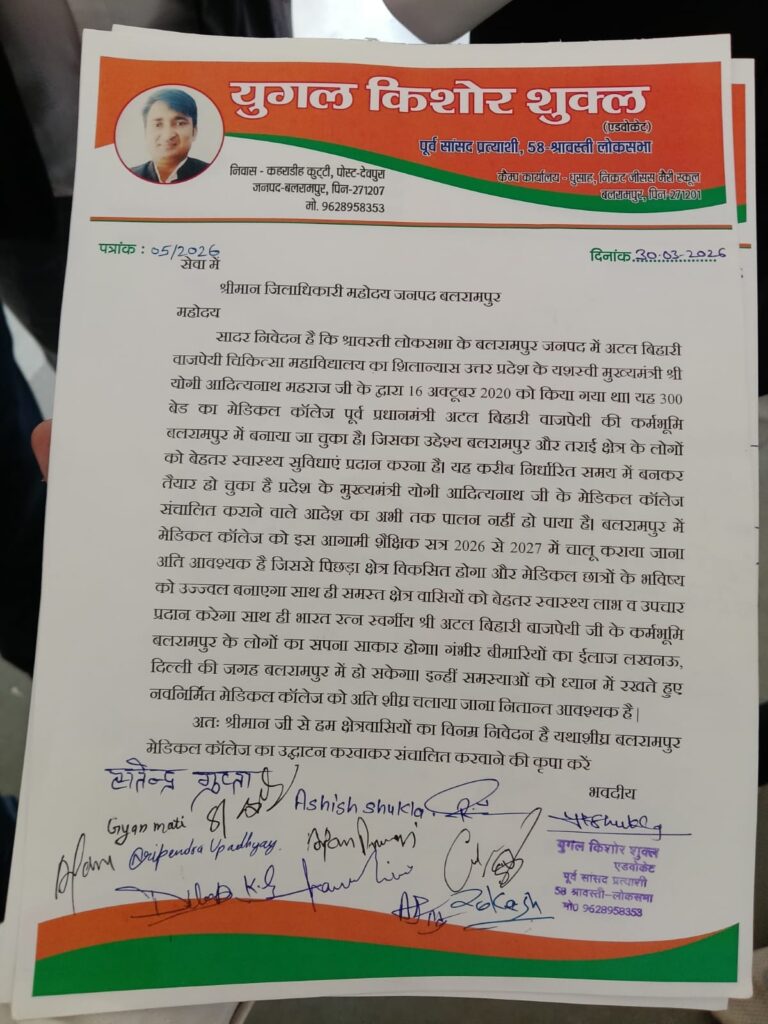 युगल किशोर शुक्ल
(एडवोकेट)
पूर्व सांसद प्रत्याशी, 58-श्रावस्ती लोकसभा
निवास - कहराडीह कुट्टी, पोस्ट-देवपुरा
जनपद-बलरामपुर, पिन-271207
मो. 9628958353
कैम्प कार्यालय - धुसाह, निकट जीसस मैरी स्कूल
बलरामपुर, पिन-271201
पत्रांक : 05/2026
दिनांक 30.03.2026
सेवा में
श्रीमान जिलाधिकारी महोदय जनपद बलरामपुर
महोदय
सादर निवेदन है कि श्रावस्ती लोकसभा के बलरामपुर जनपद में अटल बिहारी
वाजपेयी चिकित्सा महाविद्यालय का शिलान्यास उत्तर प्रदेश के यशस्वी मुख्यमंत्री श्री
योगी आदित्यनाथ महराज जी के द्वारा 16 अक्टूबर 2020 को किया गया था। यह 300
बेड का मेडिकल कॉलेज पूर्व प्रधानमंत्री अटल बिहारी वाजपेयी की कर्मभूमि
बलरामपुर में बनाया जा चुका है। जिसका उद्देश्य बलरामपुर और तराई क्षेत्र के लोगों
को बेहतर स्वास्थ्य सुविधाएं प्रदान करना है। यह करीब निर्धारित समय में बनकर
तैयार हो चुका है प्रदेश के मुख्यमंत्री योगी आदित्यनाथ जी के मेडिकल कॉलेज
संचालित कराने वाले आदेश का अभी तक पालन नहीं हो पाया है। बलरामपुर में
मेडिकल कॉलेज को इस आगामी शैक्षिक सत्र 2026 से 2027 में चालू कराया जाना
अति आवश्यक है जिससे पिछड़ा क्षेत्र विकसित होगा और मेडिकल छात्रों के भविष्य
को उज्ज्वल बनाएगा साथ ही समस्त क्षेत्र वासियों को बेहतर स्वास्थ्य लाभ व उपचार
प्रदान करेगा साथ ही भारत रत्न स्वर्गीय श्री अटल बिहारी बाजपेयी जी के कर्मभूमि
बलरामपुर के लोगों का सपना साकार होगा। गंभीर बीमारियों का ईलाज लखनऊ,
दिल्ली की जगह बलरामपुर में हो सकेगा। इन्हीं समस्याओं को ध्यान में रखते हुए
नवनिर्मित मेडिकल कॉलेज को अति शीघ्र चलाया जाना नितान्त आवश्यक है |
अतः श्रीमान जी से हम क्षेत्रवासियों का विनम्र निवेदन है यथाशीघ्र बलरामपुर
मेडिकल कॉलेज का उद्घाटन करवाकर संचालित करवाने की कृपा करें
भवदीय
गुप्ता
Ashish shukla
Gyan mati
Dripendra Upadhyay.
युगल किशोर शुक्ल
एडवोकेट
पूर्व सांसद प्रत्याशी
58 श्रावस्ती-लोकसभा
मो0 9628958353